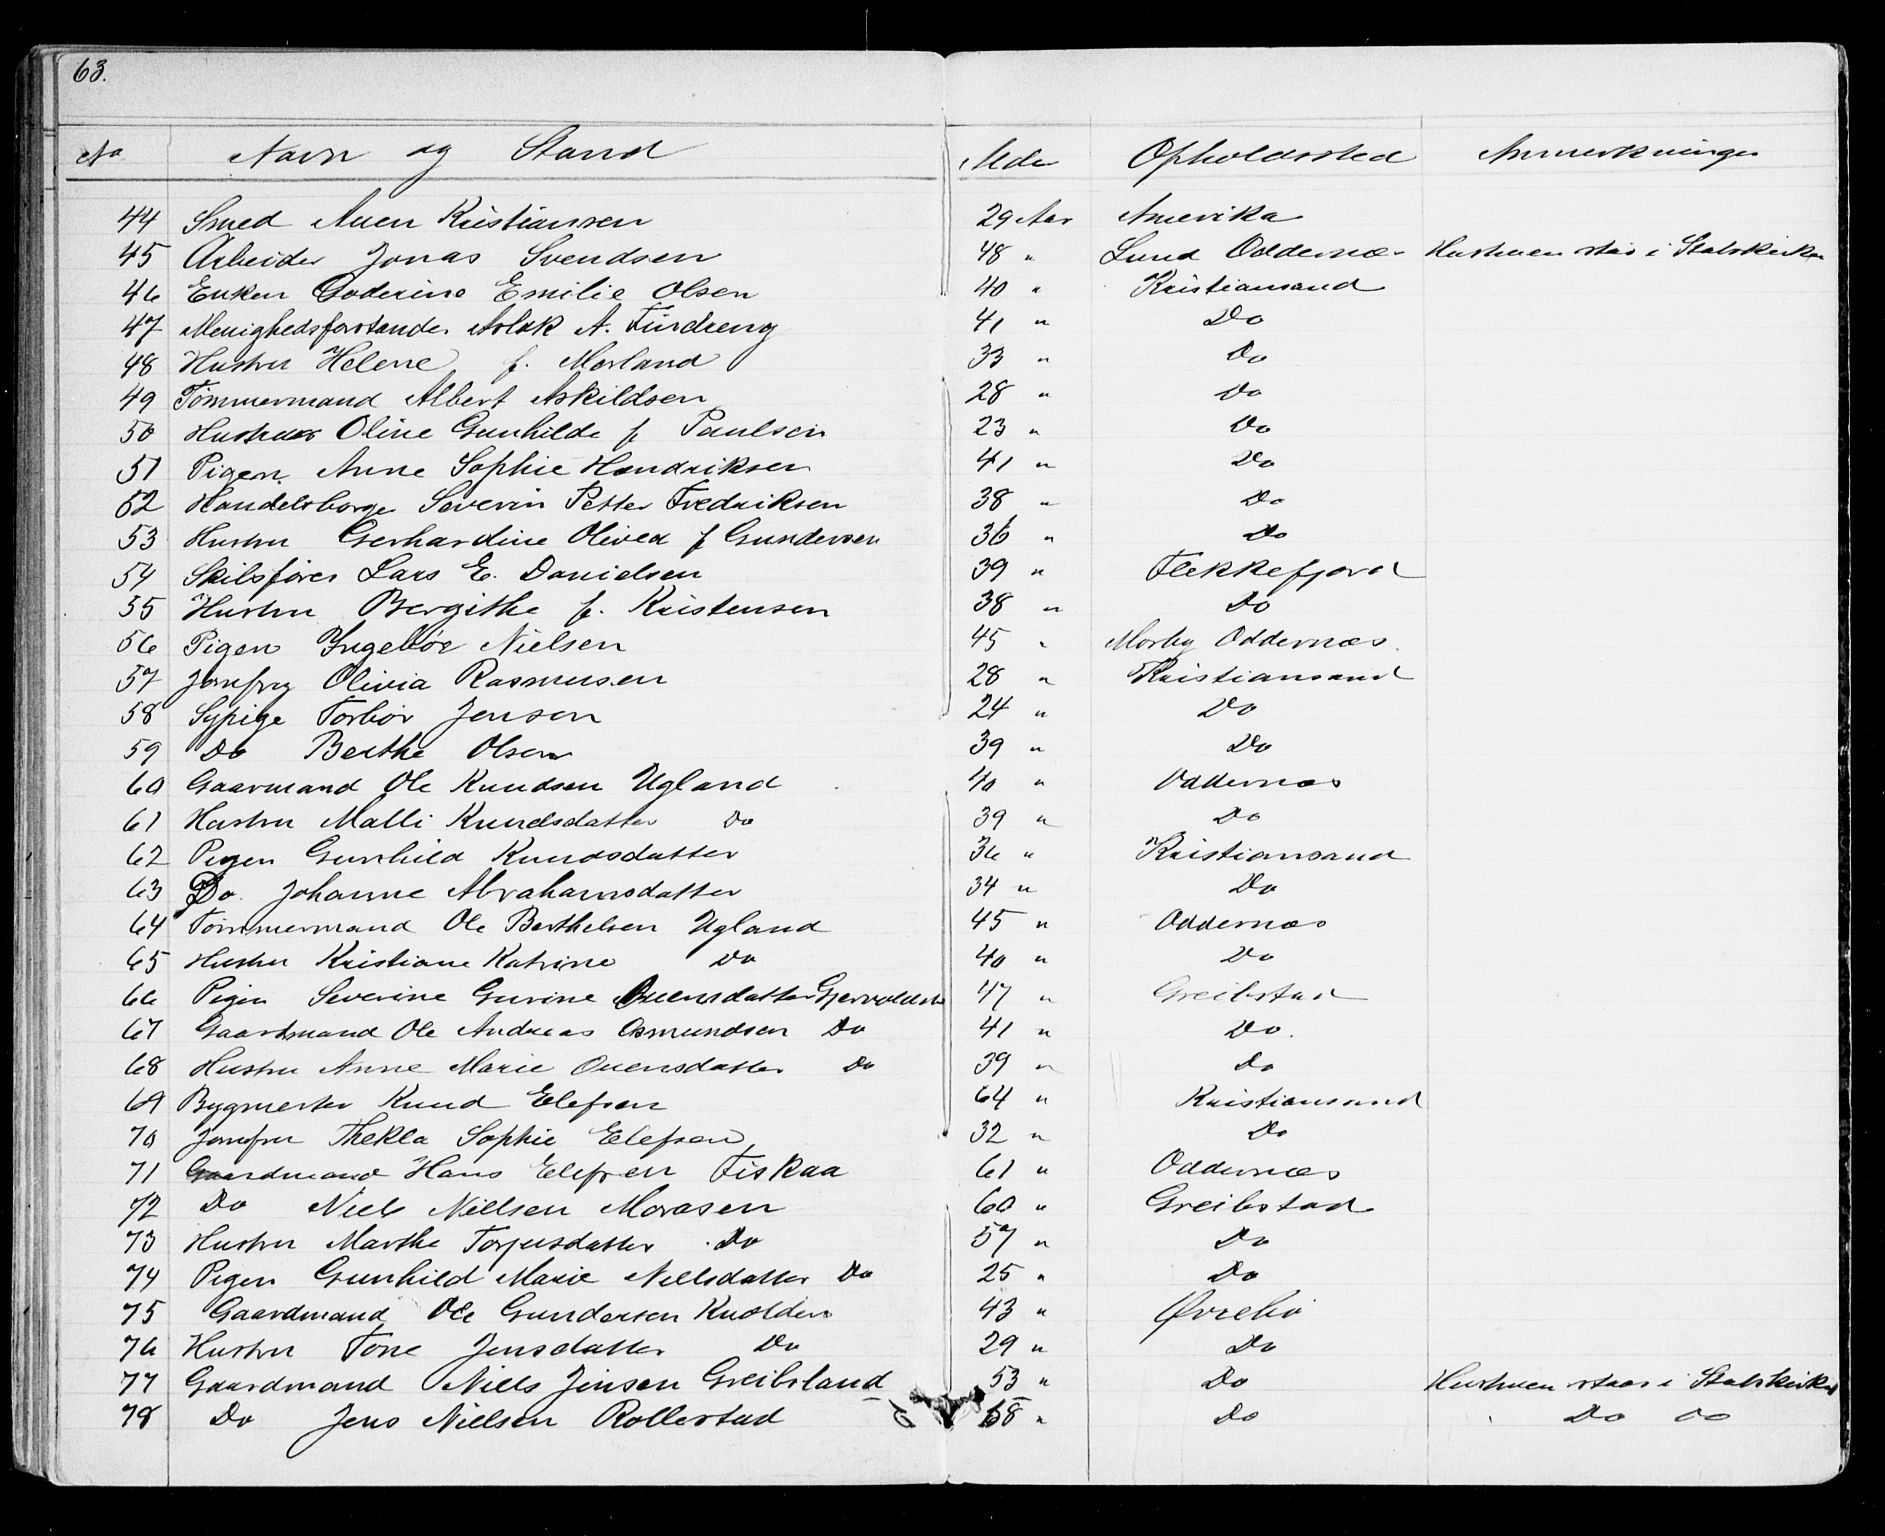 63.
No Navn og Stand Alder Opholdssted Anmerkninger
44 Smed Auen Kristiansen 29 Aar Amerika
45 Arbeider Jonas Svendsen 48 " Lund Oddernæs Hustruen staar i Statskirken
46 Enken Emilie Olsen 40 " Kristiansand
47 Menighedsforstander Aslak A. 41 " Do
48 Hustru Helene f. Morland 33 " Do
49 Tømmermand Albert Askildsen 28 " Do
50 Hustru Oline Gunhilde f Paulsen 23 " Do
51 Pigen Anne Sophie Hendriksen 41 " Do
52 Handelsborger Severin Petter Fredriksen 38 " Do
53 Hustru Gerhardine Olivea f Gundersen 36 " Do
54 Skibsfører Lars E. Danielsen 39 " Flekkefjord
55 Hustru Bergithe f. Kristensen 38 " Do
56 Pigen Ingebør Nielsen 45 " Morby Oddernæs.
57 Jomfru Olivia Rasmusen 28 " Kristiansand
58 Sypige Torbør Jensen 24 " Do
59 Do Berthe Olsen 39 " Do
60 Gaarmand Ole Knudsen Ugland 40 " Oddernæs
61 Hustru Malli Knudsdatter Do 39 " Do
62 Pigen Gunhild Knudsdatter 36 " Kristiansand
63 Do. Johanne Abrahamsdatter 34 " Do
64 Tømmermand Ole Berthelsen Ugland 45 " Oddernæs
65 Hustru Kristiane Katrine Do 40 " Do
66 Pigen Severine Gurine Ouensdatter 47 " Greibstad
67 Gaardmand Ole Andreas Osmundsen Do 41 " Do.
68 Hustru Anne Marie Ouensdatter Do 39 " Do
69 Bygmester Knud Elefsen 64 " Kristiansand
70 Jomfru Thekla Sophie Elefsen 32 " Do
71 Gaardmand Hans Elefsen Fiskaa 61 " Oddernæs
72 Do Niels Nielsen Moraasen 60 " Greibstad
73 Hustru Marthe Torjusdatter Do 57 " Do
74 Pigen Gunhild Marie Nielsdatter Do 25 " Do
75 Gaardmand Ole Gundersen Knolden 43 " Øvrebø
76 Hustru Tone Jensdatter Do 29 " Do
77 Gaardmand Niels Jensen Greibsland 53 " Do Hustruen staar i Statskirken
78 Do Jens Nielsen Rollerstad 58 " Do Do Do